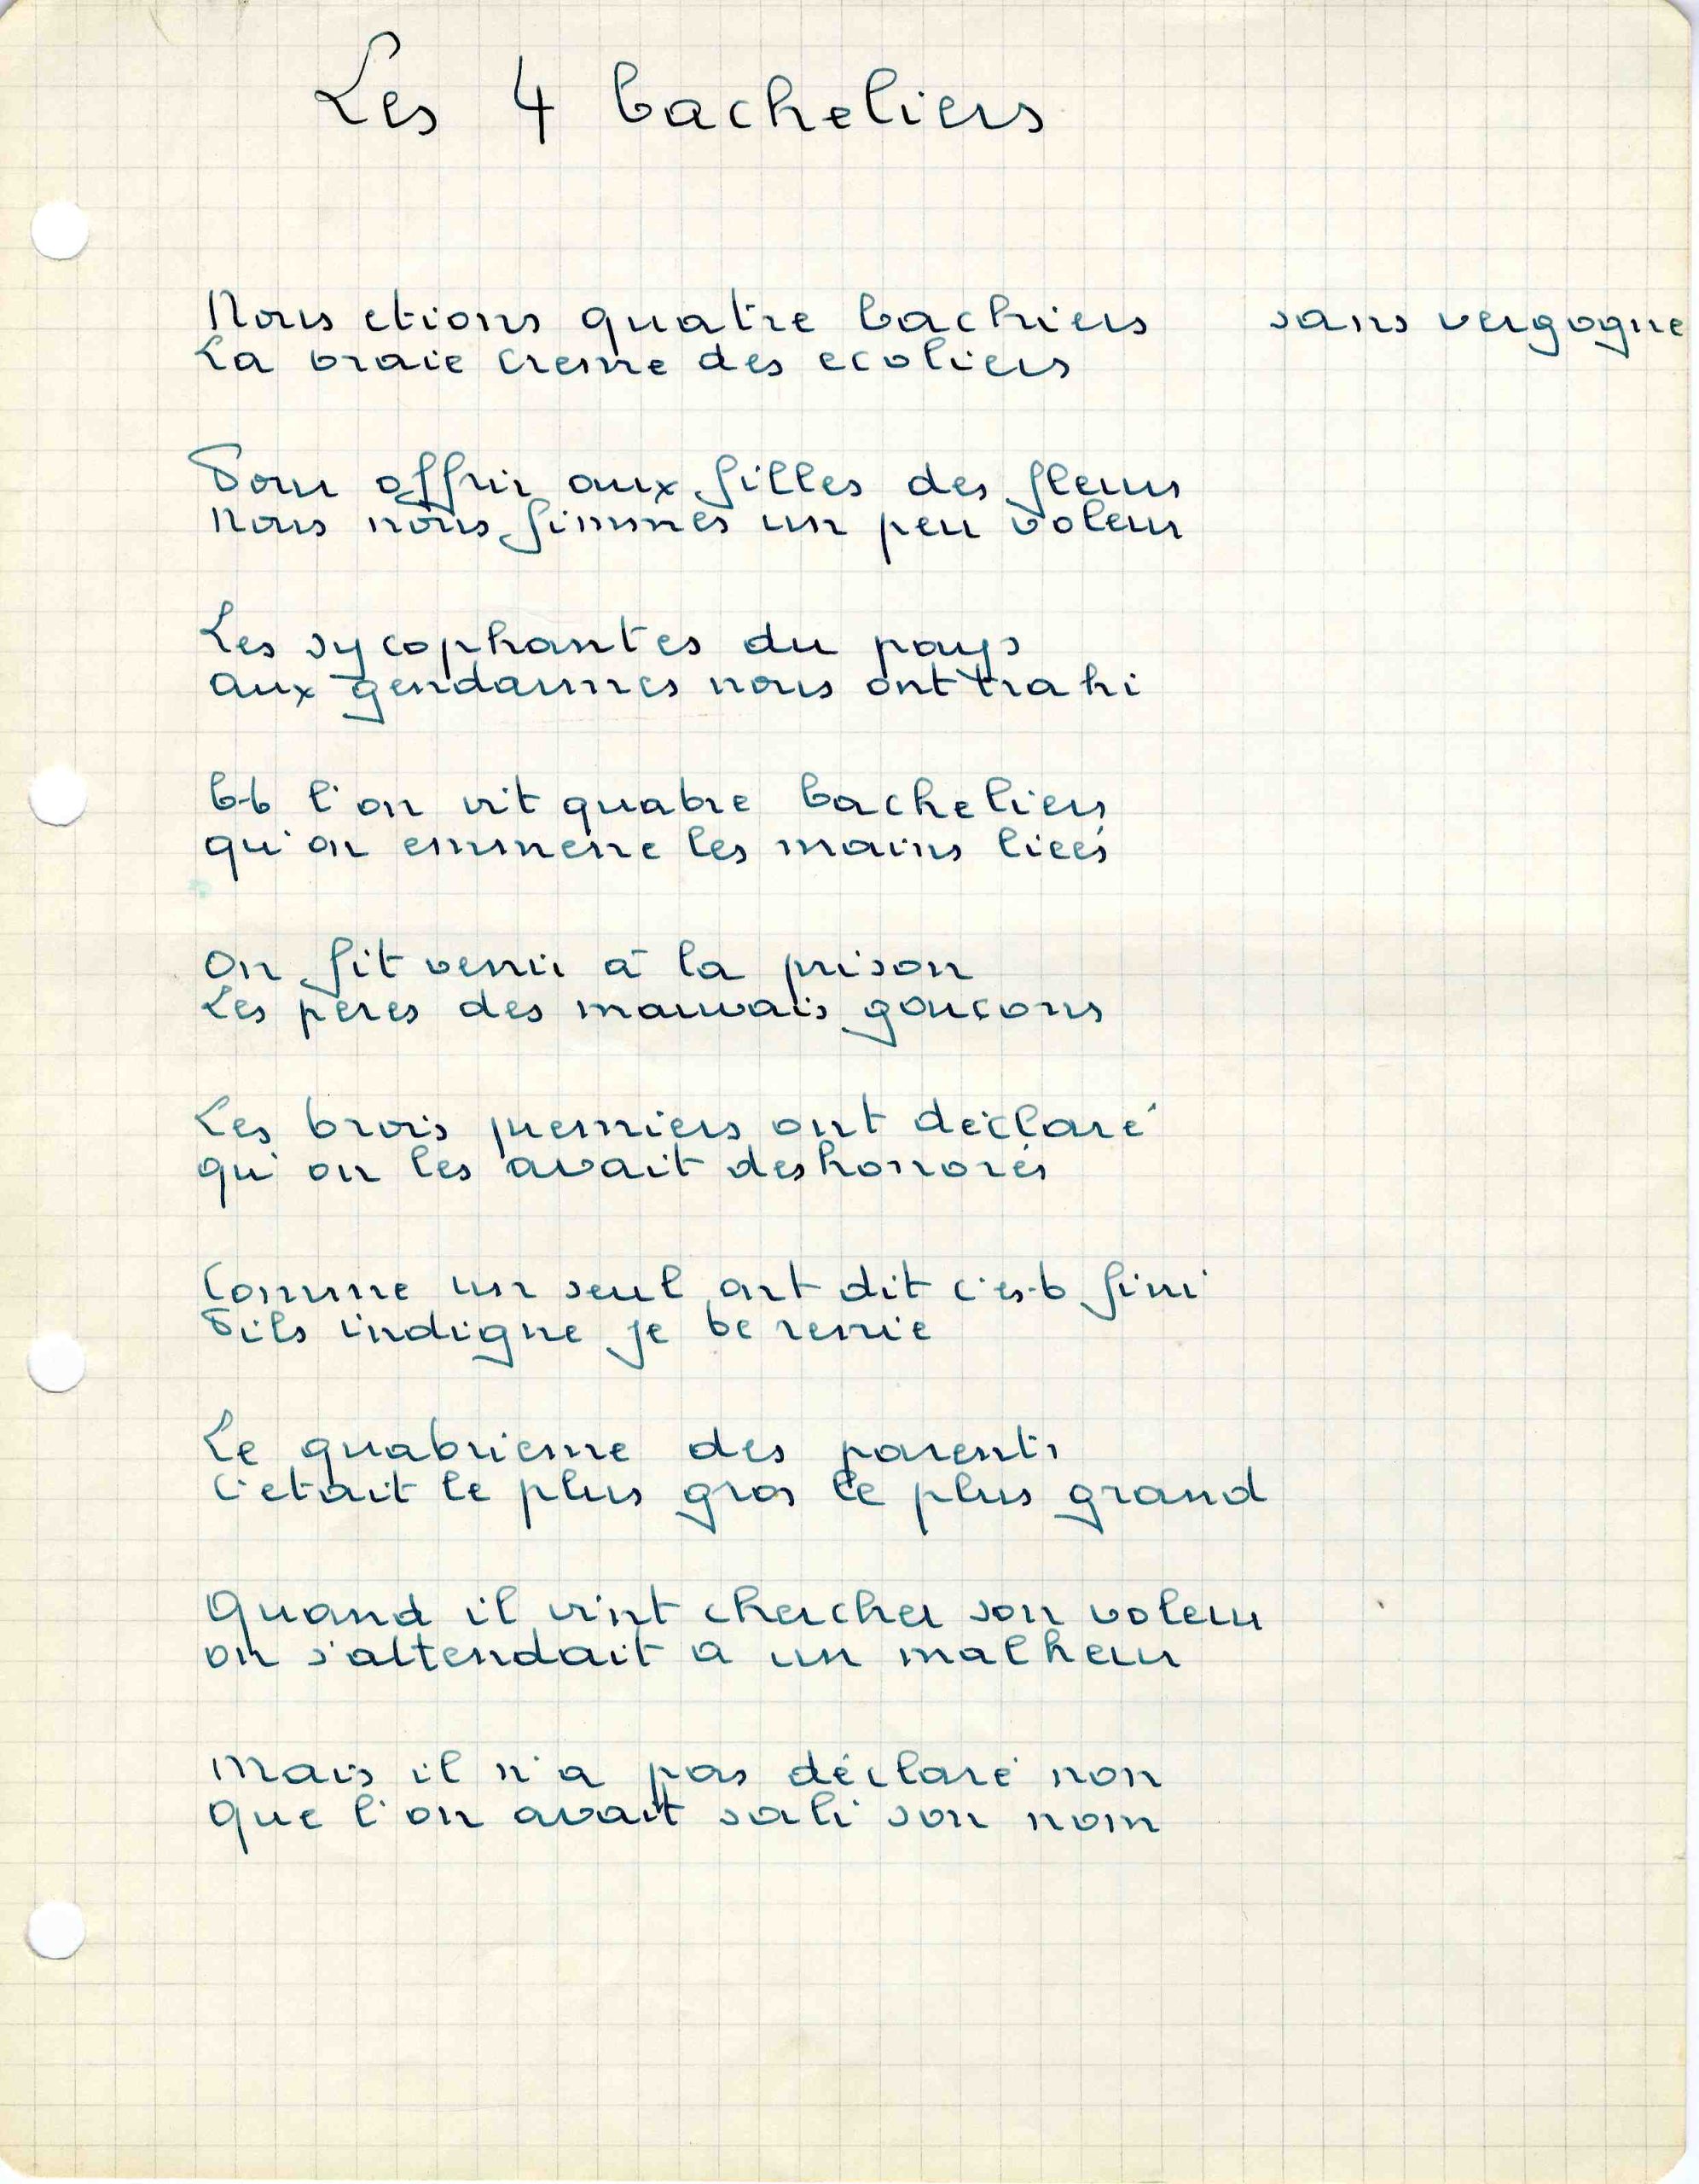 Les 4 bacheliers
Nous etions quatre bachiers sans vergogne
La vraie creme des ecoliers
Pour offrir aux filles des fleurs
nous nous fimmes un peu voleur
Les sycophantes du pays
aux gendarmes nous ont trahi
Et l'on vit quatre bacheliers
qu'on emmene les mains liees
On fit venir à la prison
Les peres des mauvais garcons
Les trois premiers ont déclaré
qu'on les avait deshonorés
Comme un seul ont dit c'est fini
Fils indigne je te renie
Le quatrieme des parents
c'etait le plus gros le plus grand
Quand il vint chercher son voleur
on s'attendait a un malheur
Mais il n'a pas déclaré non
Que l'on avait sali son nom